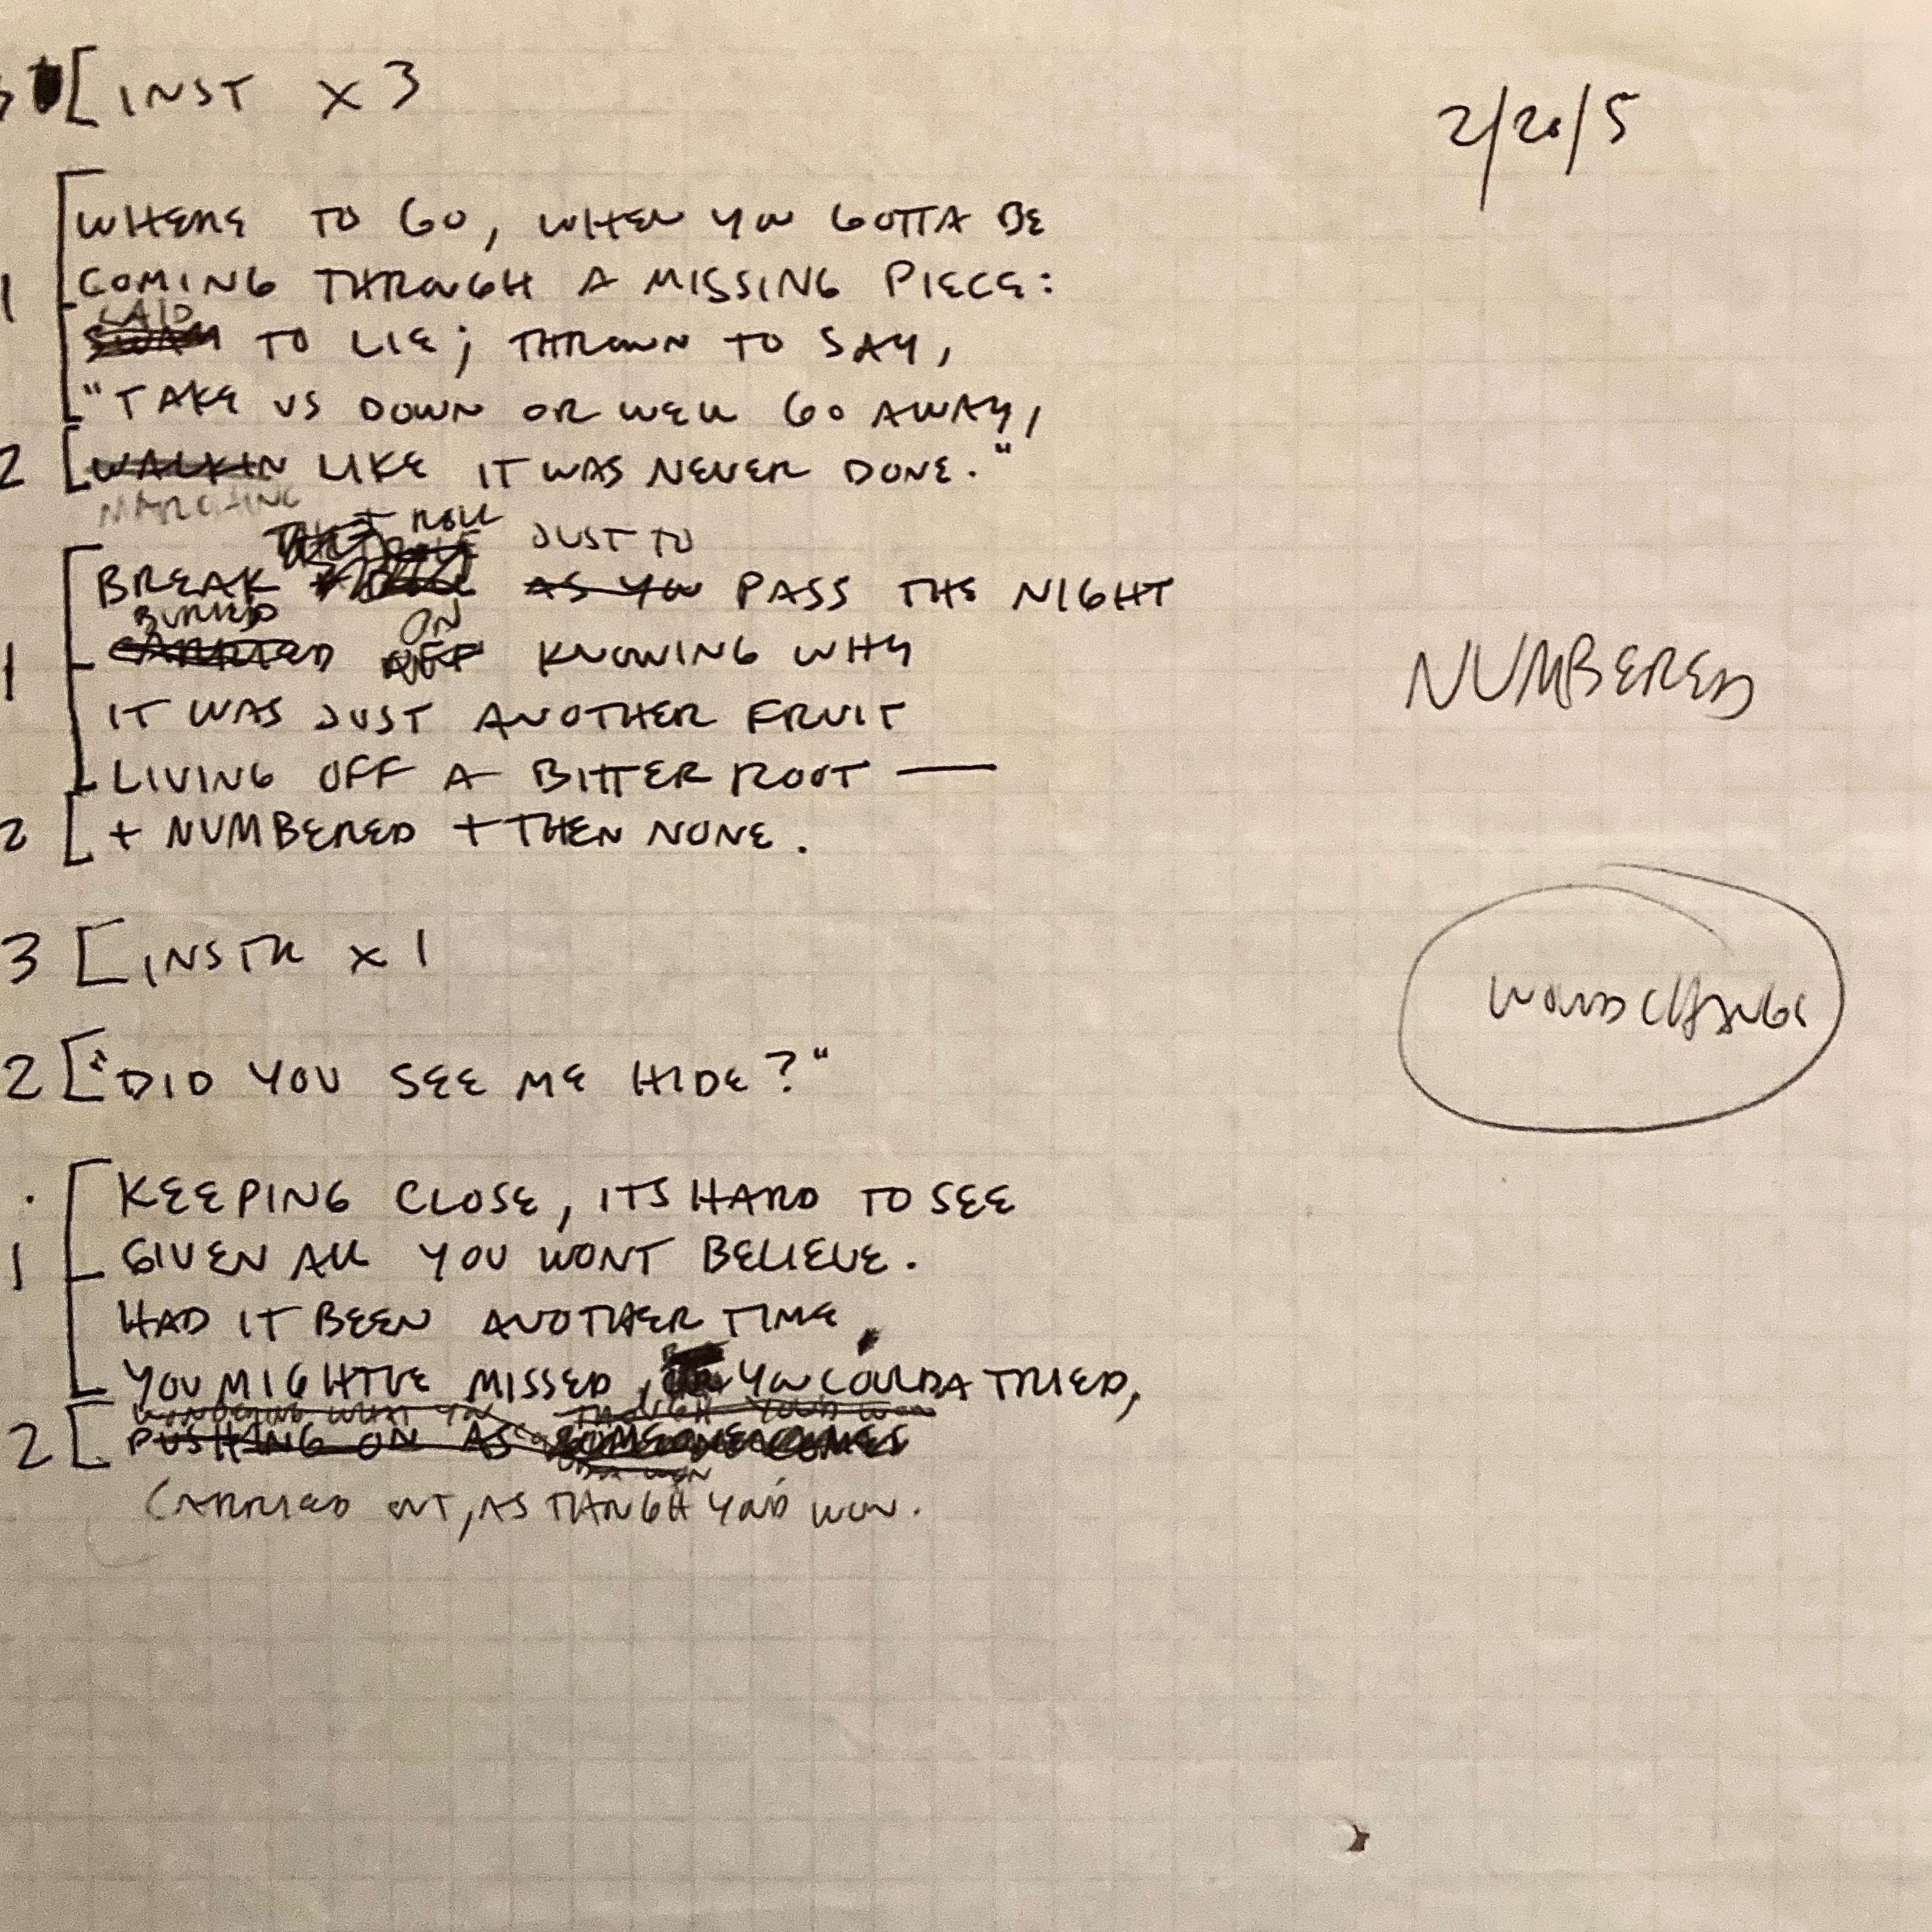 3 [ INST X 3
2/20/5
WHERE TO GO, WHEN YOU GOTTA BE
1 COMING THROUGH A MISSING PIECE:
SAID
TO LIE; THROWN TO SAY,
"TAKE US DOWN OR WELL GO AWAY,
2 [ WALKIN LIKE IT WAS NEVER DONE."
MARCHING
THAT ROLL JUST TO
BREAK AS YOU PASS THE NIGHT
BURNED ON
1 OFF KNOWING WHY
NUMBERED
IT WAS JUST ANOTHER FRUIT
LIVING OFF A BITTER ROOT —
2 [ + NUMBERED + THEN NONE.
3 [ INSTR X 1
WORD CHANGE
2 [ "DID YOU SEE ME HIDE?"
KEEPING CLOSE, ITS HARD TO SEE
1 GIVEN ALL YOU WONT BELIEVE.
HAD IT BEEN ANOTHER TIME,
YOU MIGHTVE MISSED, YOU COULDA TRIED,
WONDERING WHAT YOU THOUGH YOU'D WON
2 [ PUSHING ON AS SOMEONE COMES
CARRIED OUT, AS THOUGH YOU'D WON.